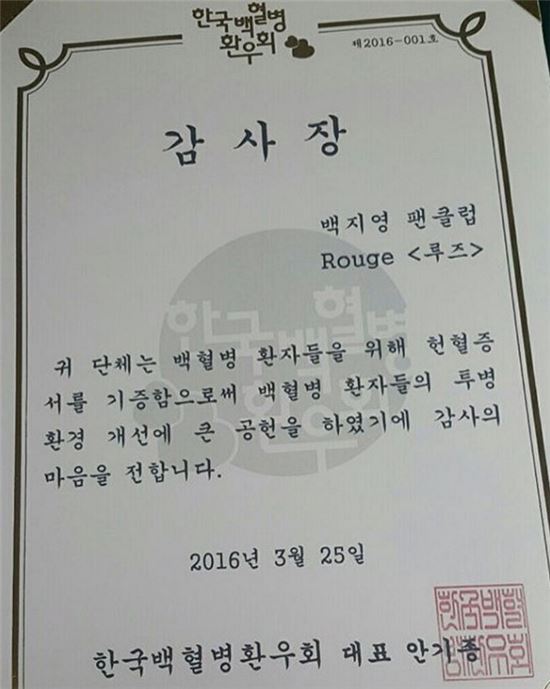 한국백혈병
환우회
제2016-001호
감사장
백지영 팬클럽
Rouge <루즈>
한국백혈병
환우회
귀 단체는 백혈병 환자들을 위해 헌혈증
서를 기증함으로써 백혈병 환자들의 투병
환경 개선에 큰 공헌을 하였기에 감사의
마음을 전합니다.
2016년 3월 25일
한국백혈병환우회 대표 안기종